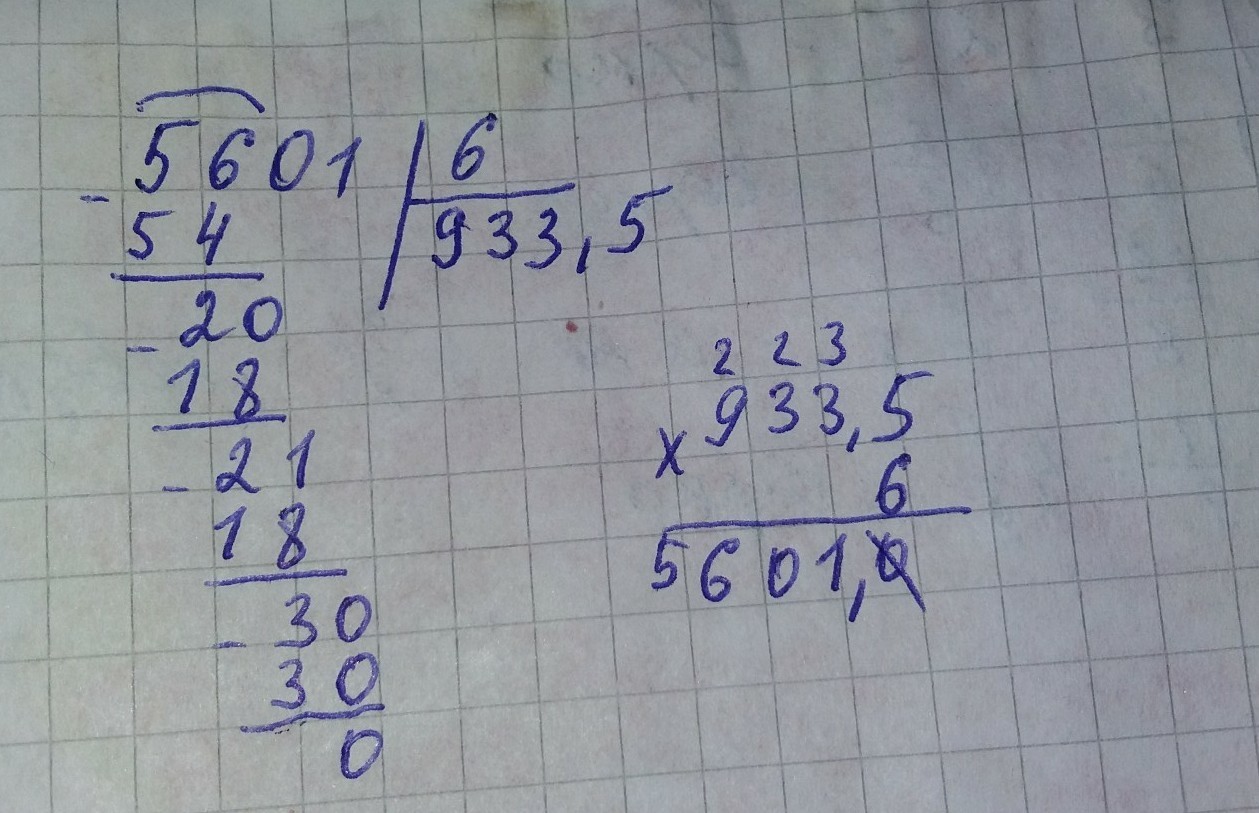 5601 6
- 54 933,5
- 20
18
- 21
18
- 30
30
0
2 2 3
933,5
x 6
5601,0